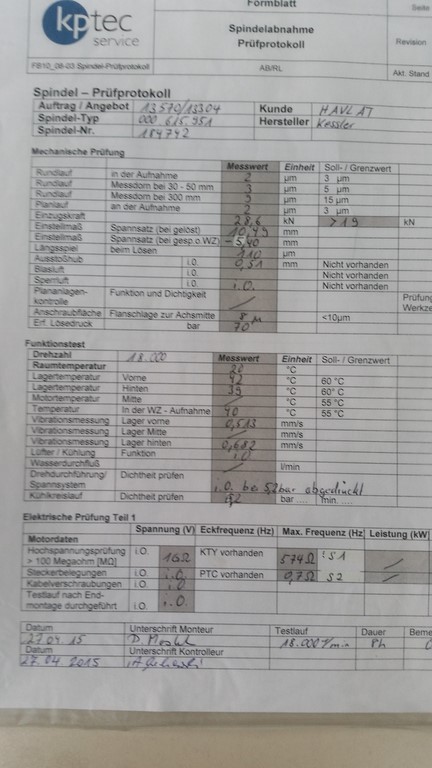 Formblatt
Seite
kptec
service
Spindelabnahme
Prüfprotokoll
Revision
FB10_08-03 Spindel-Prüfprotokoll
AB/RL
Akt. Stand
Spindel – Prüfprotokoll
Auftrag / Angebot 13570/15304 Kunde HAVLAT
Spindel-Typ 000.615.951 Hersteller Kessler
Spindel-Nr. 184742
Mechanische Prüfung
Messwert Einheit Soll- / Grenzwert
Rundlauf in der Aufnahme 2 µm 3 µm
Rundlauf Messdorn bei 30 - 50 mm 3 µm 5 µm
Rundlauf Messdorn bei 300 mm µm 15 µm
Planlauf an der Aufnahme 2 µm 3 µm
Einzugskraft 28,6 kN >19 kN
Einstellmaß Spannsatz (bei gelöst) 10,49 mm
Einstellmaß Spannsatz (bei gesp.o.WZ) -5,40 mm
Längsspiel beim Lösen 110 µm
Ausstoßhub 0,51 mm
Blasluft i.O. Nicht vorhanden
Sperrluft i.O. Nicht vorhanden
i.O. Nicht vorhanden
Plananlagen-
kontrolle Funktion und Dichtigkeit Prüfung
Werkze
Anschraubfläche Flanschlage zur Achsmitte 8 µ <10µm
Erf. Lösedruck bar 70
Funktionstest
Drehzahl 18.000 Messwert Einheit Soll- / Grenzwert
Raumtemperatur 20 °C
Lagertemperatur Vorne 42 °C 60 °C
Lagertemperatur Hinten 39 °C 60° C
Motortemperatur Mitte °C 55 °C
Temperatur In der WZ - Aufnahme 40 °C 55 °C
Vibrationsmessung Lager vorne 0,513 mm/s
Vibrationsmessung Lager Mitte mm/s
Vibrationsmessung Lager hinten 0,682 mm/s
Lüfter / Kühlung Funktion i.O
Wasserdurchfluß l/min
Drehdurchführung/
Spannsystem Dichtheit prüfen i.O. bei 52bar abgedrückt
Kühlkreislauf Dichtheit prüfen bar .... min. ....
Elektrische Prüfung Teil 1
Spannung (V) Eckfrequenz (Hz) Max. Frequenz (Hz) Leistung (kW)
Motordaten
Hochspannungsprüfung
> 100 Megaohm [MΩ] i.O. 1GΩ KTY vorhanden 574Ω : S1
Steckerbelegungen i.O. i.O PTC vorhanden 0,7Ω S2
Kabelverschraubungen i.O. i.O
Testlauf nach End-
montage durchgeführt i.O. i.O
Datum Unterschrift Monteur Testlauf Dauer Beme
27.04.15 18.000 1/min 8h
Datum Unterschrift Kontrolleur
27.04.2015